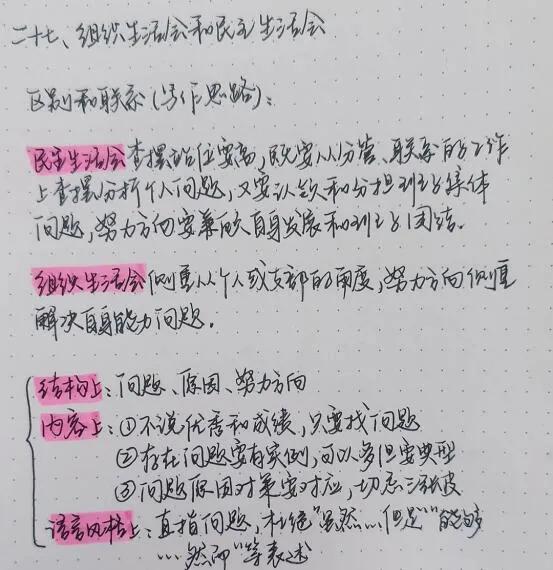 二十七、组织生活会和民主生活会
区别和联系(写作思路):
民主生活会查摆站位要高,既要从分管、联系的工作
上查摆分析个人问题,又要认领和分担班子集体
问题,努力方向要兼顾自身发展和班子团结。
组织生活会侧重从个人或支部的角度,努力方向侧重
解决自身能力问题。
结构上:问题、原因、努力方向
内容上:①不说优秀和成绩,只要找问题
②存在问题要有实例,可以多但要典型
③问题原因对策要对应,切忌两张皮
语言风格上:直指问题,杜绝"虽然...但是""能够
...然而"等表述